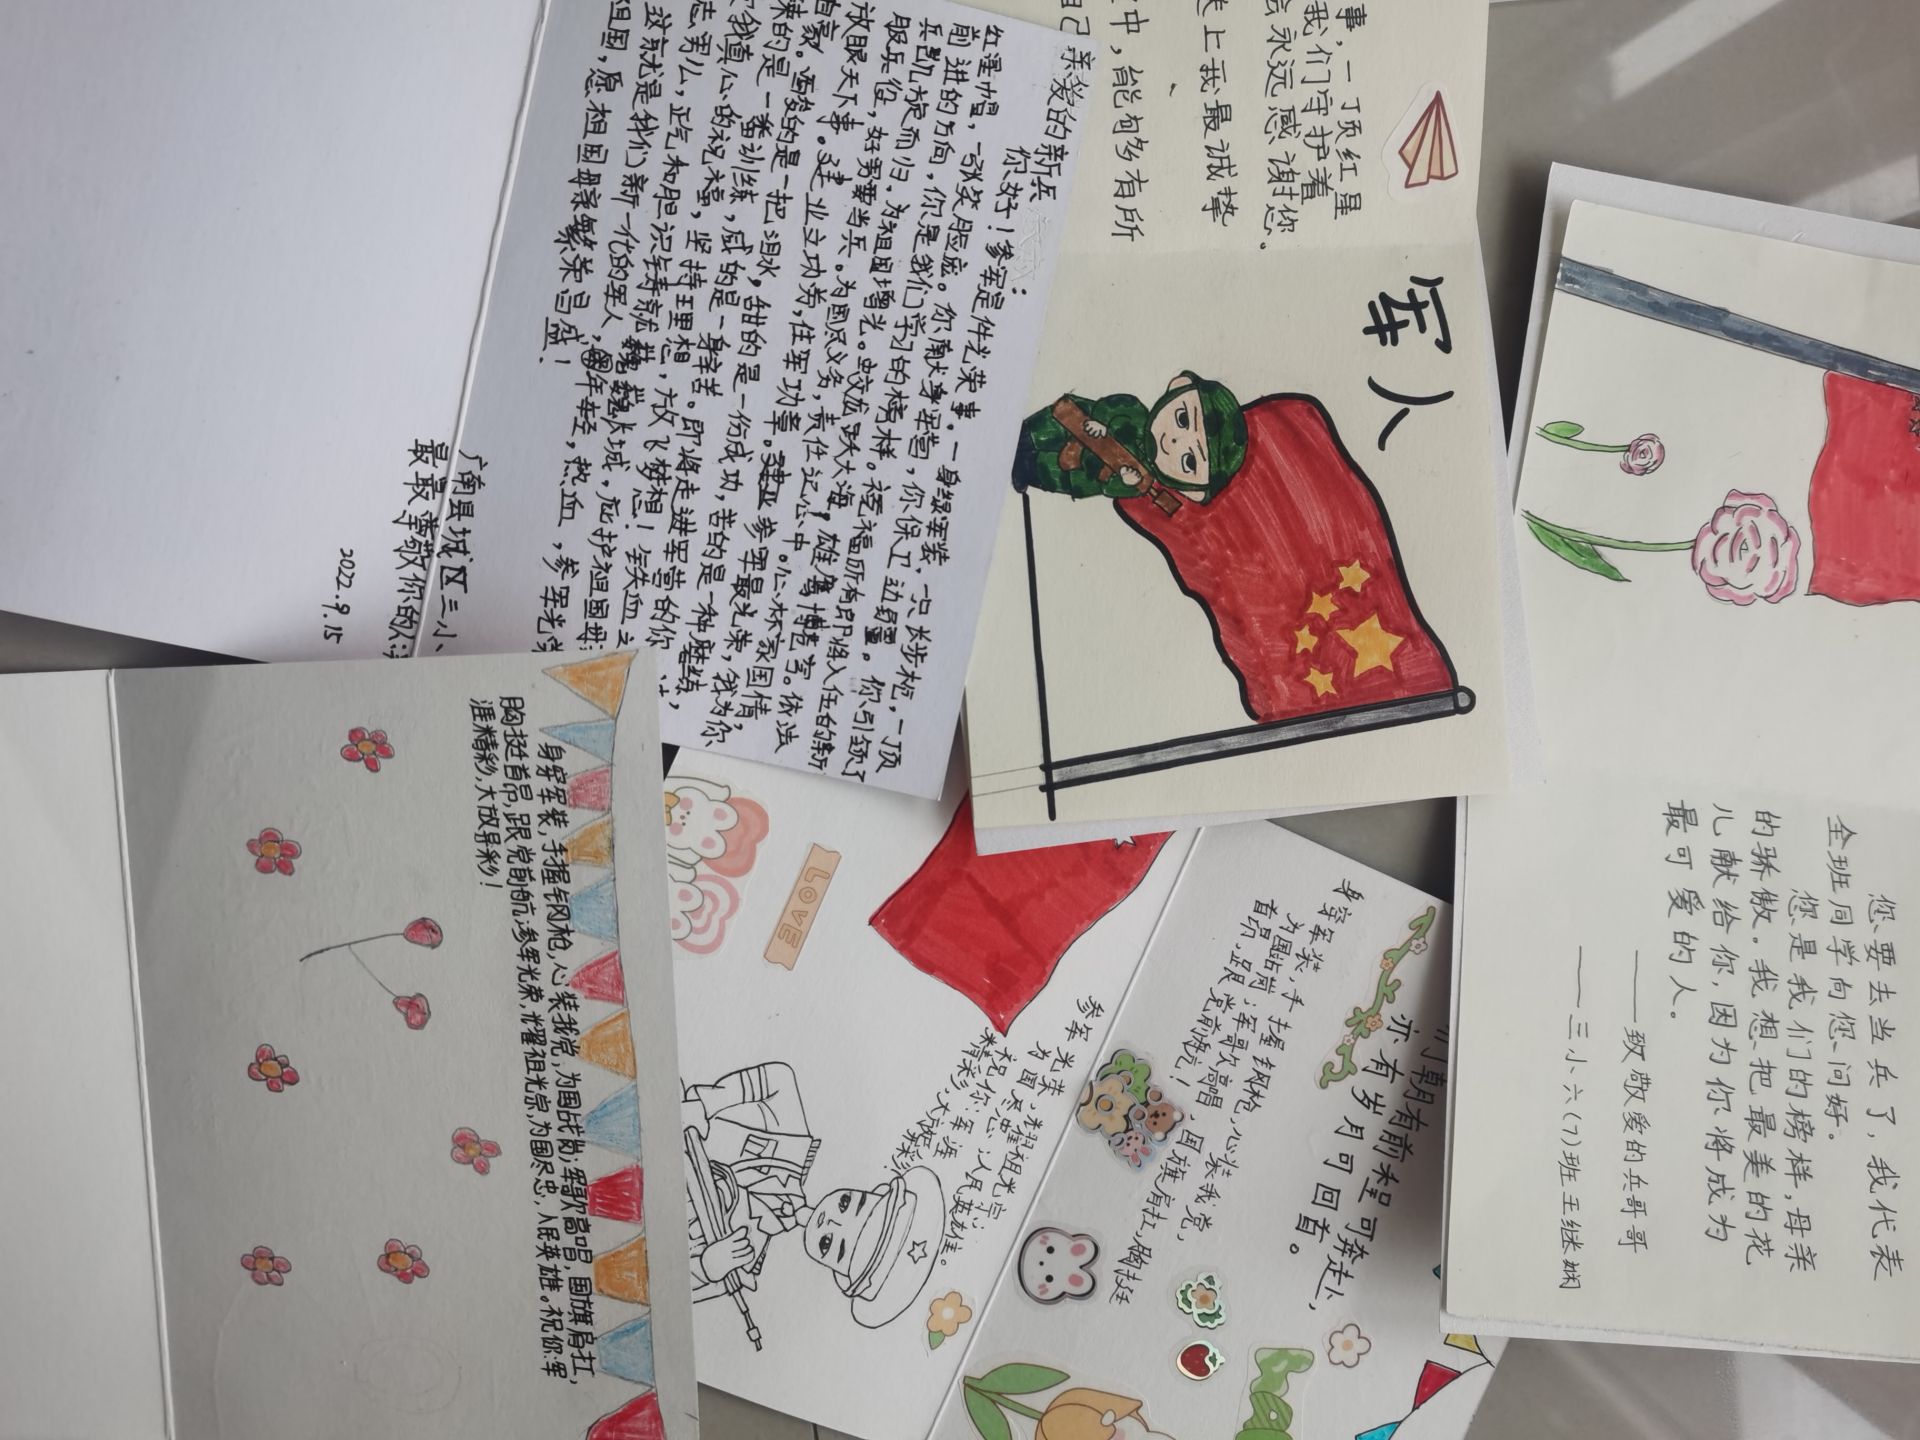 亲爱的新兵
你好！参军是件光荣事。一身绿军装，一只长步枪，一顶
红星帽，一张笑脸庞。你献身军营，你保卫边疆。你引领了
前进的方向，你是我们学习的榜样。祝福所有即将入伍的新
兵凯旋而归，为祖国增光。蛟龙跃大海，雄鹰搏苍穹。依法
服兵役，好男要当兵。为国尽义务，责任记心中。心怀家国情，
放眼天下事。建业立功劳，住军功章。参军最光荣，我为你
自豪。酒的是一把泪水，甜的是一份成功，苦的是一种磨练，
来的是一番训练，咸的是一身辛苦。即将走进军营的你
我真心的祝福，坚持理想，放飞梦想！铁血之
志男么，正气和胆识铸就巍巍长城，庇护祖国母
这就是我们新一代的军人，年轻，热血，参军光荣
祖国，愿祖国母亲繁荣昌盛！
广南县城区三小、
最最尊敬你的人
2022.9.15
事，一顶红星
我们守护着
会永远感谢您。
送上我最诚挚
中，能够多有所
自己
军人
您要去当兵了，我代表
全班同学向您问好。
您是我们的榜样，母亲
的骄傲。我想把最美的花
儿献给你，因为你将成为
最可爱的人。
——致敬爱的兵哥哥
——三小六(7)班王继娴
身穿军装，手握钢枪，心装我党，为国战岗；军歌高唱，国旗肩扛，
胸挺首昂，跟党前航；参军光荣，耀祖光宗，为国尽忠，人民英雄。祝你军
涯精彩，大放异彩！
LOVE
参军光荣，耀祖光宗；
为国尽忠，人民英雄。
祝你军涯
精彩，大放异彩！
们期有前程可奔赴，
亦有岁月可回首。
身穿军装，手握钢枪，心装我党，
为国站岗；军歌高唱，国旗肩扛，胸挺
首昂，跟党前航！